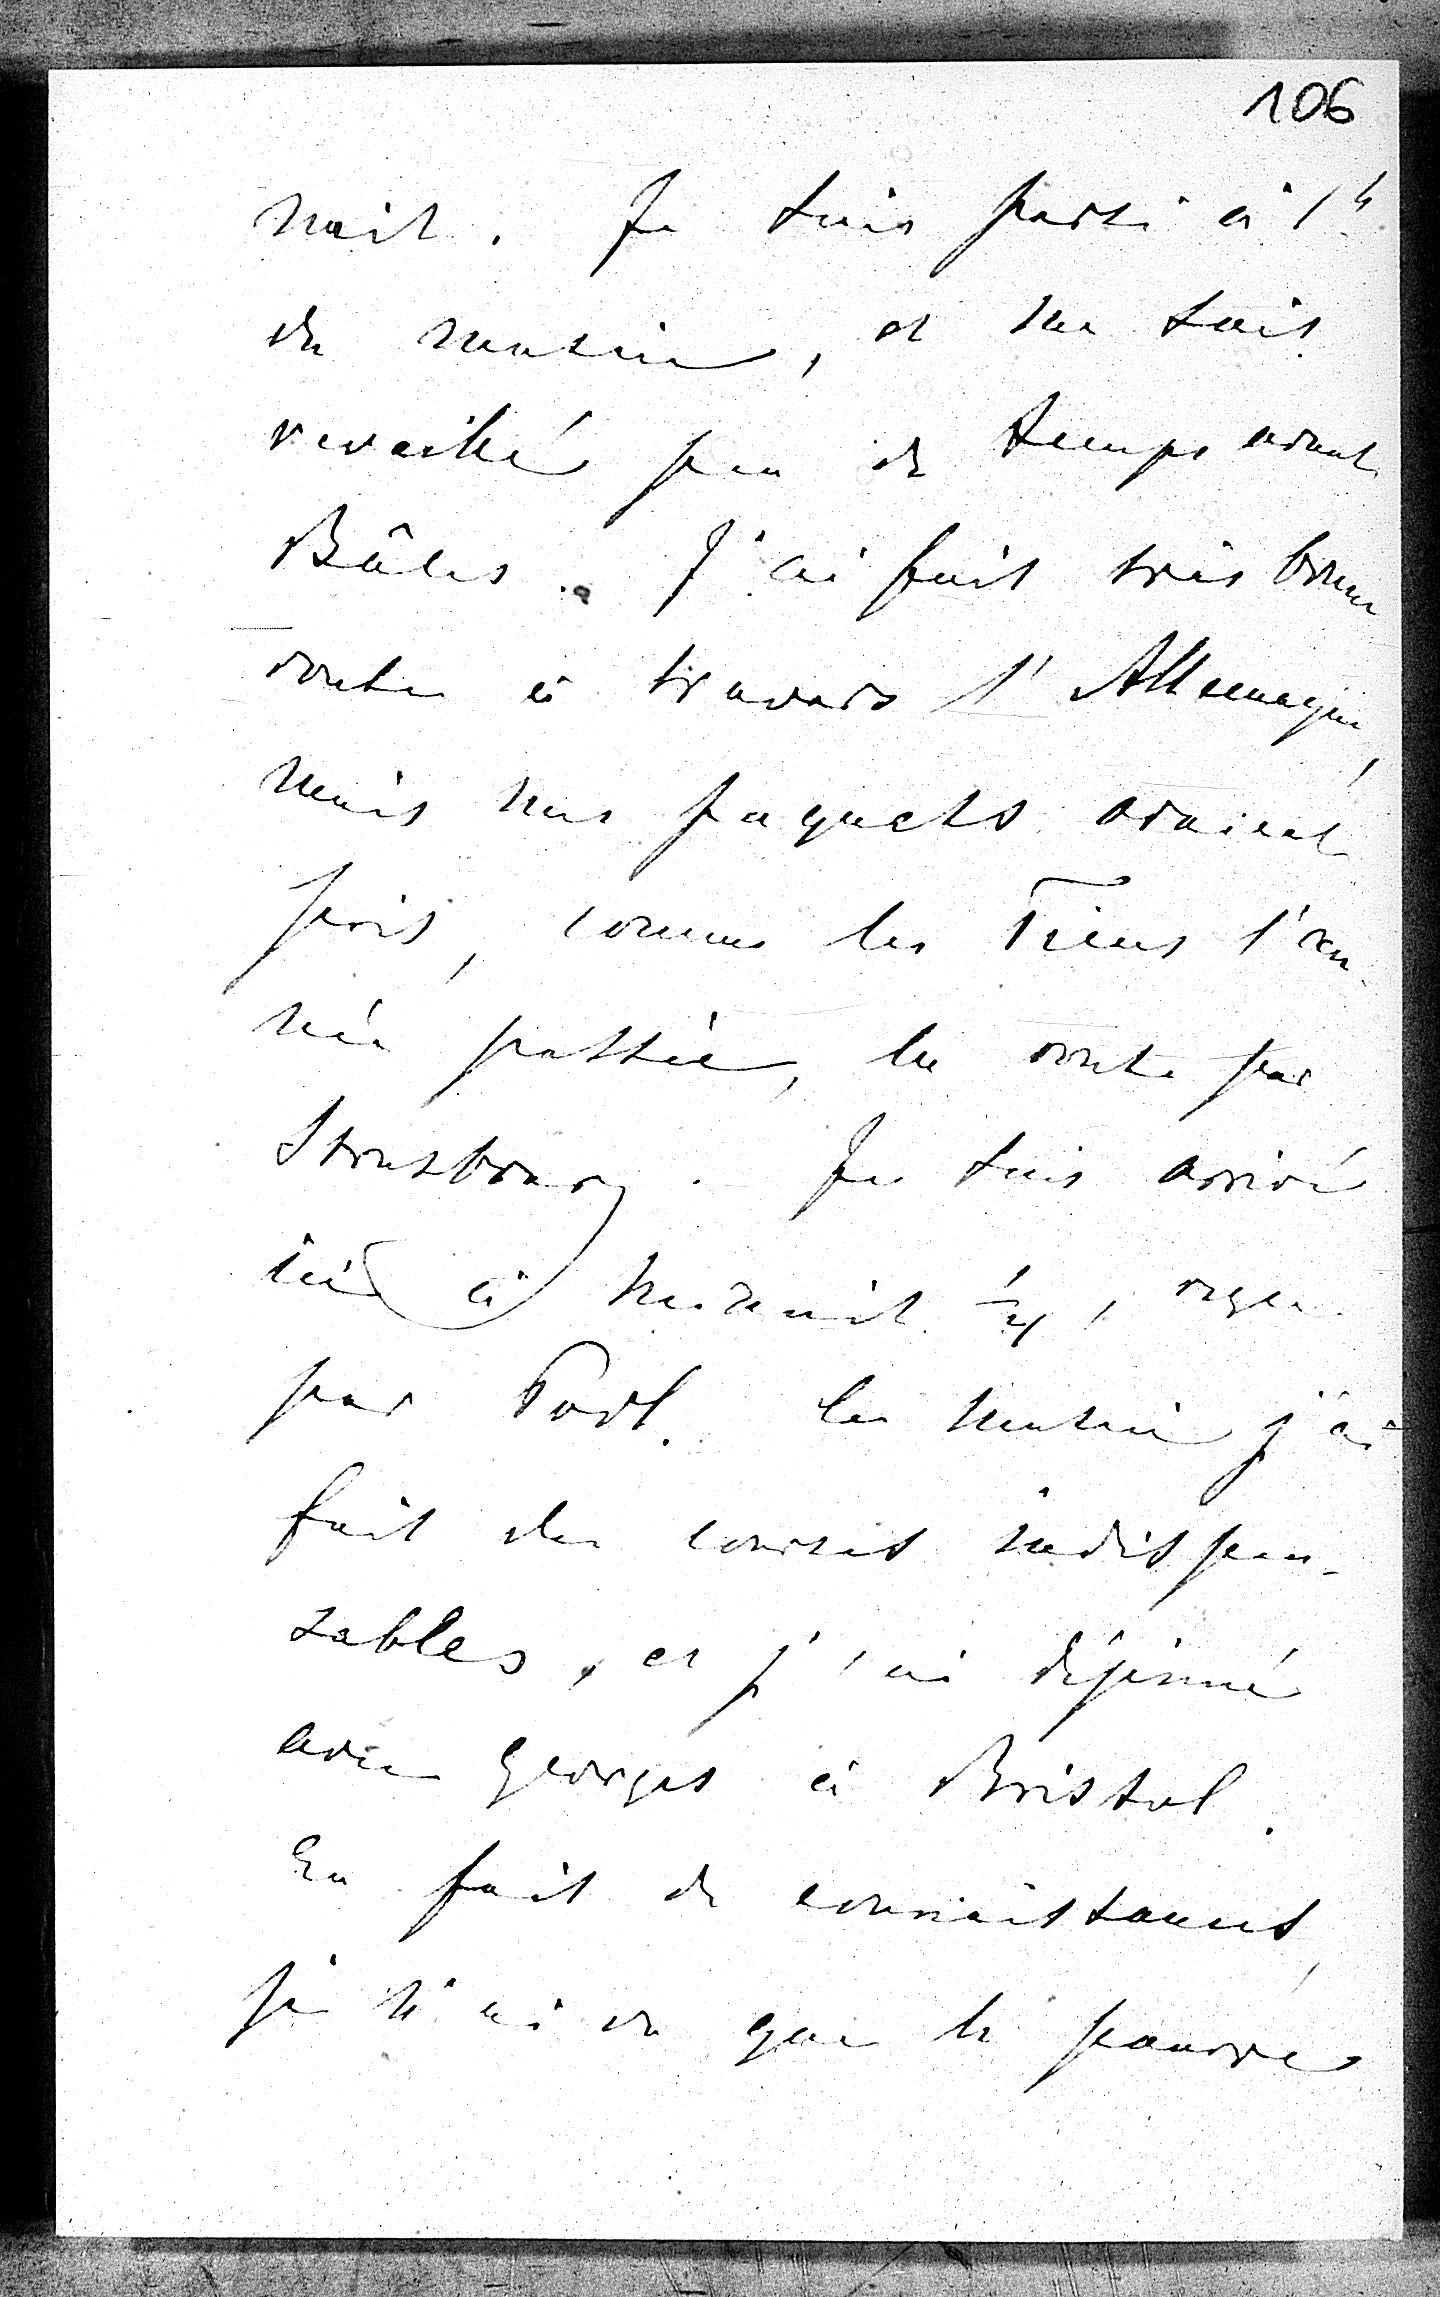 106
nait. Je suis parti à 1h
du matin, et me suis
reveillé peu de temps avant
Bâles. J'ai fait très bonne
route à travers l'Allemagne,
mais mes paquets avaient
pris, comme les Tiens l'an-
née passée, la route par
Strasbourg. Je suis arrivé
ici à minuit ¼, reçu
par Porl. Le matin j'ai
fait des courses indispen-
sables, et j'ai déjeuné
avec Georges à Bristol.
En fait de connaissances,
je n'ai vu que le pauvre